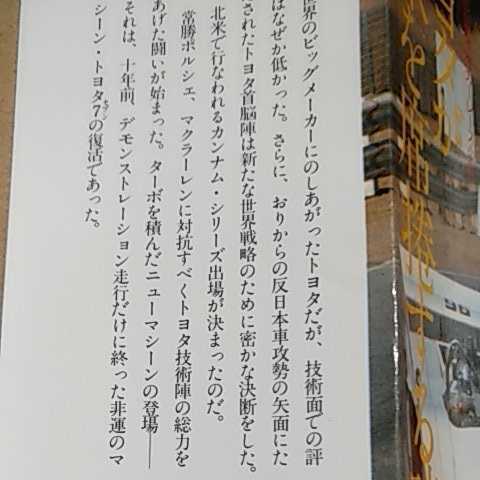 世界のビッグメーカーにのしあがったトヨタだが、技術面での評
はなぜか低かった。さらに、おりからの反日本車攻勢の矢面にた
されたトヨタ首脳陣は新たな世界戦略のために密かな決断をした。
北米で行なわれるカンナム・シリーズ出場が決まったのだ。
常勝ポルシェ、マクラーレンに対抗すべくトヨタ技術陣の総力を
あげた闘いが始まった。ターボを積んだニューマシーンの登場――
それは、十年前、デモンストレーション走行だけに終った非運のマ
シーン・トヨタ7の復活であった。